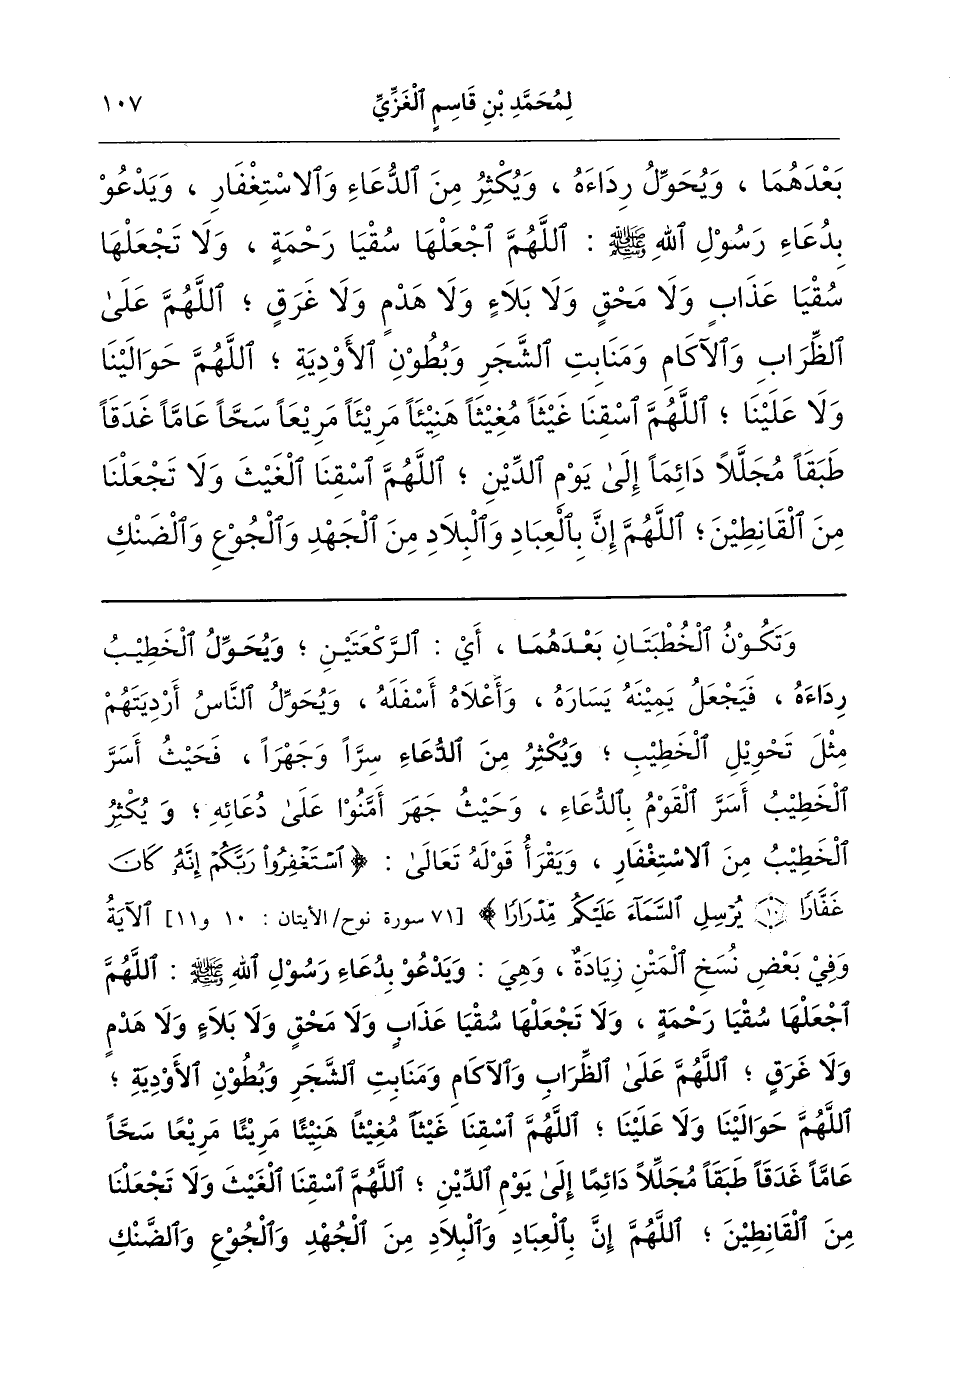 لِمُحَمَّدِ بْنِ قَاسِمٍ ٱلْغَزِّيِّ ١٠٧
بَعْدَهُمَا ، وَيُحَوِّلُ رِدَاءَهُ ، وَيُكْثِرُ مِنَ ٱلدُّعَاءِ وَٱلاسْتِغْفَارِ ، وَيَدْعُوْ
بِدُعَاءِ رَسُوْلِ ٱللهِ ﷺ : ٱللَّهُمَّ ٱجْعَلْهَا سُقْيَا رَحْمَةٍ ، وَلَا تَجْعَلْهَا
سُقْيَا عَذَابٍ وَلَا مَحْقٍ وَلَا بَلَاءٍ وَلَا هَدْمٍ وَلَا غَرَقٍ ؛ ٱللَّهُمَّ عَلَىٰ
ٱلظِّرَابِ وَٱلآكَامِ وَمَنَابِتِ ٱلشَّجَرِ وَبُطُوْنِ ٱلأَوْدِيَةِ ؛ ٱللَّهُمَّ حَوَالَيْنَا
وَلَا عَلَيْنَا ؛ ٱللَّهُمَّ ٱسْقِنَا غَيْثَاً مُغِيْثَاً هَنِيْئَاً مَرِيْئَاً مَرِيْعَاً سَحَّاً عَامَّاً غَدَقَاً
طَبَقَاً مُجَلَّلاً دَائِمَاً إِلَىٰ يَوْمِ ٱلدِّيْنِ ؛ ٱللَّهُمَّ ٱسْقِنَا ٱلْغَيْثَ وَلَا تَجْعَلْنَا
مِنَ ٱلْقَانِطِيْنَ؛ ٱللَّهُمَّ إِنَّ بِٱلْعِبَادِ وَٱلْبِلَادِ مِنَ ٱلْجَهْدِ وَٱلْجُوْعِ وَٱلْضَنْكِ
وَتَكُوْنُ ٱلْخُطْبَتَانِ بَعْدَهُمَا ، أَيْ : ٱلرَّكْعَتَيْنِ ؛ وَيُحَوِّلُ ٱلْخَطِيْبُ
رِدَاءَهُ ، فَيَجْعَلُ يَمِيْنَهُ يَسَارَهُ ، وَأَعْلَاهُ أَسْفَلَهُ ، وَيُحَوِّلُ ٱلنَّاسُ أَرْدِيَتَهُمْ
مِثْلَ تَحْوِيْلِ ٱلْخَطِيْبِ ؛ وَيُكْثِرُ مِنَ ٱلدُّعَاءِ سِرَّاً وَجَهْرَاً ، فَحَيْثُ أَسَرَّ
ٱلْخَطِيْبُ أَسَرَّ ٱلْقَوْمُ بِٱلدُّعَاءِ ، وَحَيْثُ جَهَرَ أَمَّنُوْا عَلَىٰ دُعَائِهِ ؛ وَ يُكْثِرُ
ٱلْخَطِيْبُ مِنَ ٱلاسْتِغْفَارِ ، وَيَقْرَأُ قَوْلَهُ تَعَالَىٰ : ﴿ ٱسْتَغْفِرُوا۟ رَبَّكُمْ إِنَّهُۥ كَانَ
غَفَّارًا ۝١٠ يُرْسِلِ ٱلسَّمَآءَ عَلَيْكُم مِّدْرَارًا ﴾ [٧١ سورة نوح/الأيتان : ١٠ و١١] ٱلآيَةُ
وَفِيْ بَعْضِ نُسَخِ ٱلْمَتْنِ زِيَادَةٌ ، وَهِيَ : وَيَدْعُوْ بِدُعَاءِ رَسُوْلِ ٱللهِ ﷺ : ٱللَّهُمَّ
ٱجْعَلْهَا سُقْيَا رَحْمَةٍ ، وَلَا تَجْعَلْهَا سُقْيَا عَذَابٍ وَلَا مَحْقٍ وَلَا بَلَاءٍ وَلَا هَدْمٍ
وَلَا غَرَقٍ ؛ ٱللَّهُمَّ عَلَىٰ ٱلظِّرَابِ وَٱلآكَامِ وَمَنَابِتِ ٱلشَّجَرِ وَبُطُوْنِ ٱلأَوْدِيَةِ ؛
ٱللَّهُمَّ حَوَالَيْنَا وَلَا عَلَيْنَا ؛ ٱللَّهُمَّ ٱسْقِنَا غَيْثَاً مُغِيْثَاً هَنِيْئًا مَرِيْئًا مَرِيْعًا سَحَّاً
عَامَّاً غَدَقَاً طَبَقَاً مُجَلِّلاً دَائِمًا إِلَىٰ يَوْمِ ٱلدِّيْنِ ؛ ٱللَّهُمَّ ٱسْقِنَا ٱلْغَيْثَ وَلَا تَجْعَلْنَا
مِنَ ٱلْقَانِطِيْنَ ؛ ٱللَّهُمَّ إِنَّ بِٱلْعِبَادِ وَٱلْبِلَادِ مِنَ ٱلْجُهْدِ وَٱلْجُوْعِ وَٱلضَّنْكِ